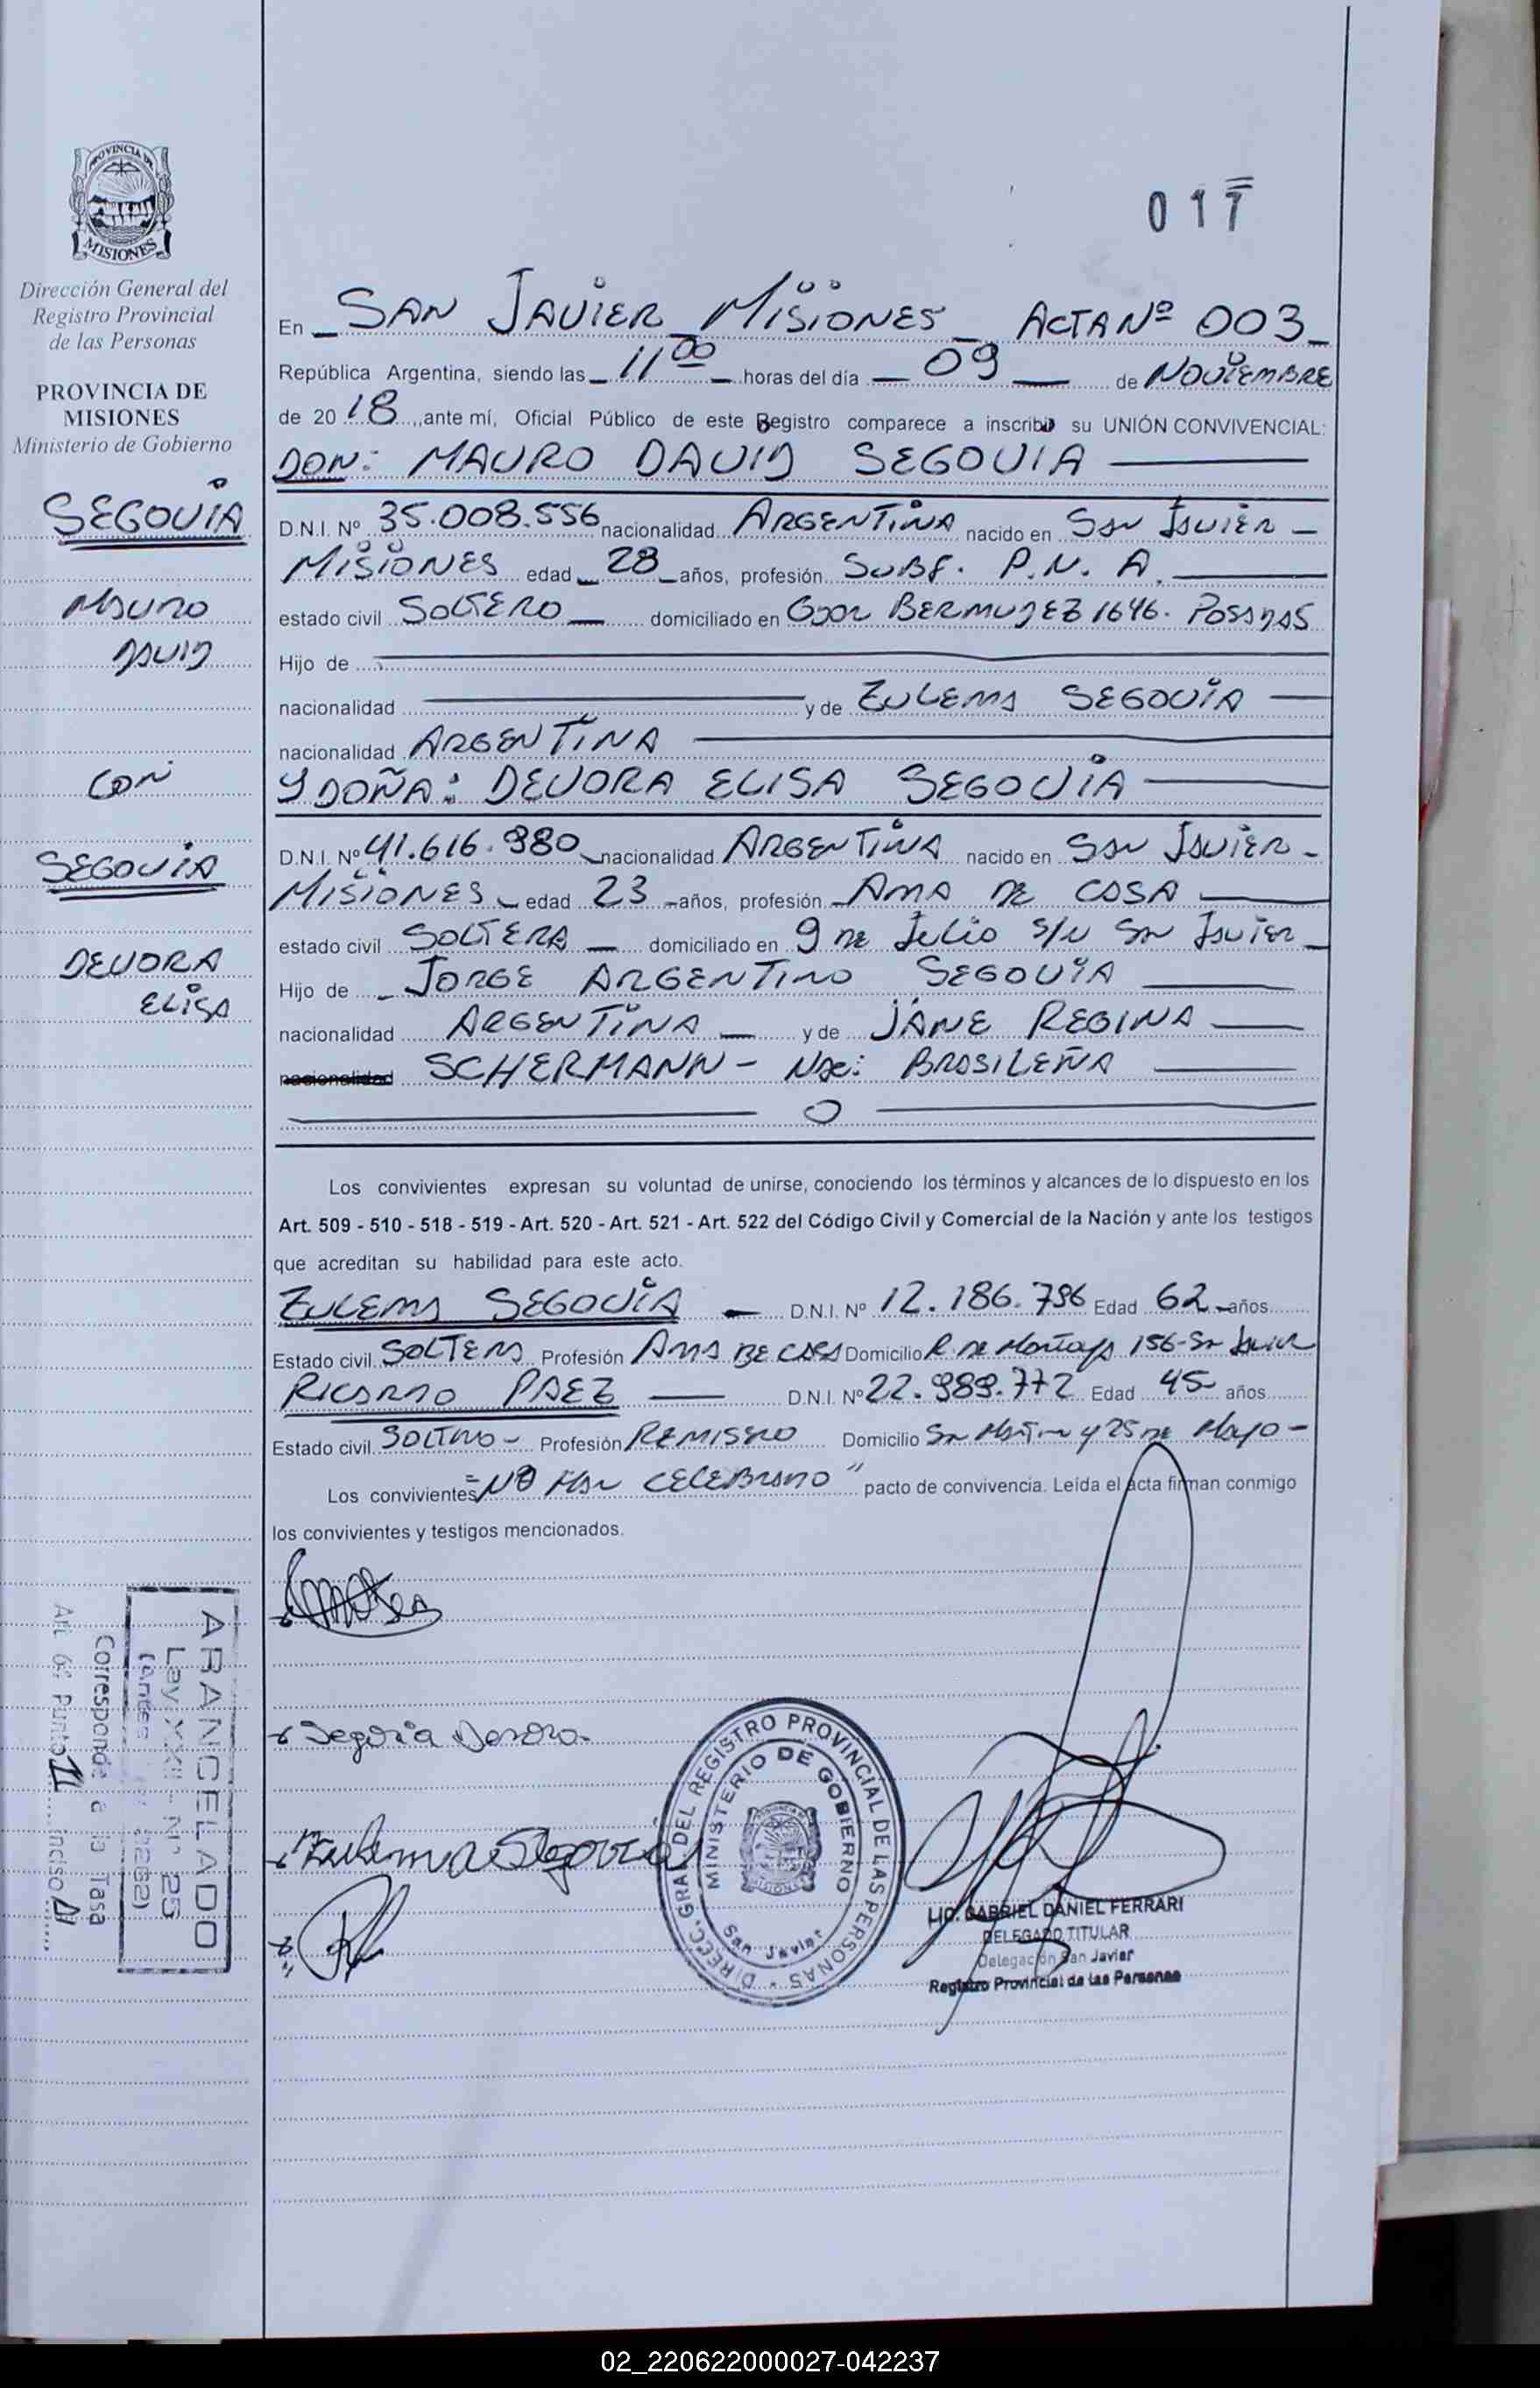 PROVINCIA DE
MISIONES
Dirección General del
Registro Provincial
de las Personas
PROVINCIA DE
MISIONES
Ministerio de Gobierno
SEGOVIA
MAURO
DAVID
CON
SEGOVIA
DEVORA
ELISA
ARANCELADO
Ley XXII - Nº 25
(Antes 2262)
Corresponde a la Tasa
Art. 6º Punto 11 inciso A
017
En SAN JAVIER MISIONES ACTA Nº 003
República Argentina, siendo las 11 00 horas del día 09 de NOVIEMBRE
de 2018, ante mí, Oficial Público de este Registro comparece a inscribir su UNIÓN CONVIVENCIAL:
DON: MAURO DAVID SEGOVIA
D.N.I. Nº 35.008.556 nacionalidad ARGENTINA nacido en SAN JAVIER -
MISIONES edad 28 años, profesión SUBF. P.N.A.
estado civil SOLTERO domiciliado en GDOR BERMUDEZ 1646. POSADAS
Hijo de
nacionalidad y de ZULEMA SEGOVIA
nacionalidad ARGENTINA
Y DOÑA: DEVORA ELISA SEGOVIA
D.N.I. Nº 41.616.980 nacionalidad ARGENTINA nacido en SAN JAVIER -
MISIONES edad 23 años, profesión AMA DE CASA
estado civil SOLTERA domiciliado en 9 DE JULIO S/N SAN JAVIER
Hijo de JORGE ARGENTINO SEGOVIA
nacionalidad ARGENTINA y de JANE REGINA
nacionalidad SCHERMANN - NAC: BRASILEÑA
Los convivientes expresan su voluntad de unirse, conociendo los términos y alcances de lo dispuesto en los
Art. 509 - 510 - 518 - 519 - Art. 520 - Art. 521 - Art. 522 del Código Civil y Comercial de la Nación y ante los testigos
que acreditan su habilidad para este acto.
ZULEMA SEGOVIA D.N.I. Nº 12.186.786 Edad 62 años
Estado civil SOLTERA Profesión AMA DE CASA Domicilio R. DE Montoya 156 - SAN JAVIER
RICARDO PAEZ D.N.I. Nº 22.989.772 Edad 45 años
Estado civil SOLTERO - Profesión REMISERO Domicilio San Martín y 25 DE Mayo -
Los convivientes "NO HAN CELEBRADO" pacto de convivencia. Leída el acta firman conmigo
los convivientes y testigos mencionados.
Segovia Devora
Zulema Segovia
DIRECC. GRAL DEL REGISTRO PROVINCIAL DE LAS PERSONAS
MINISTERIO DE GOBIERNO
San Javier
LIC. GABRIEL DANIEL FERRARI
DELEGADO TITULAR
Delegación San Javier
Registro Provincial de las Personas
02_220622000027-042237